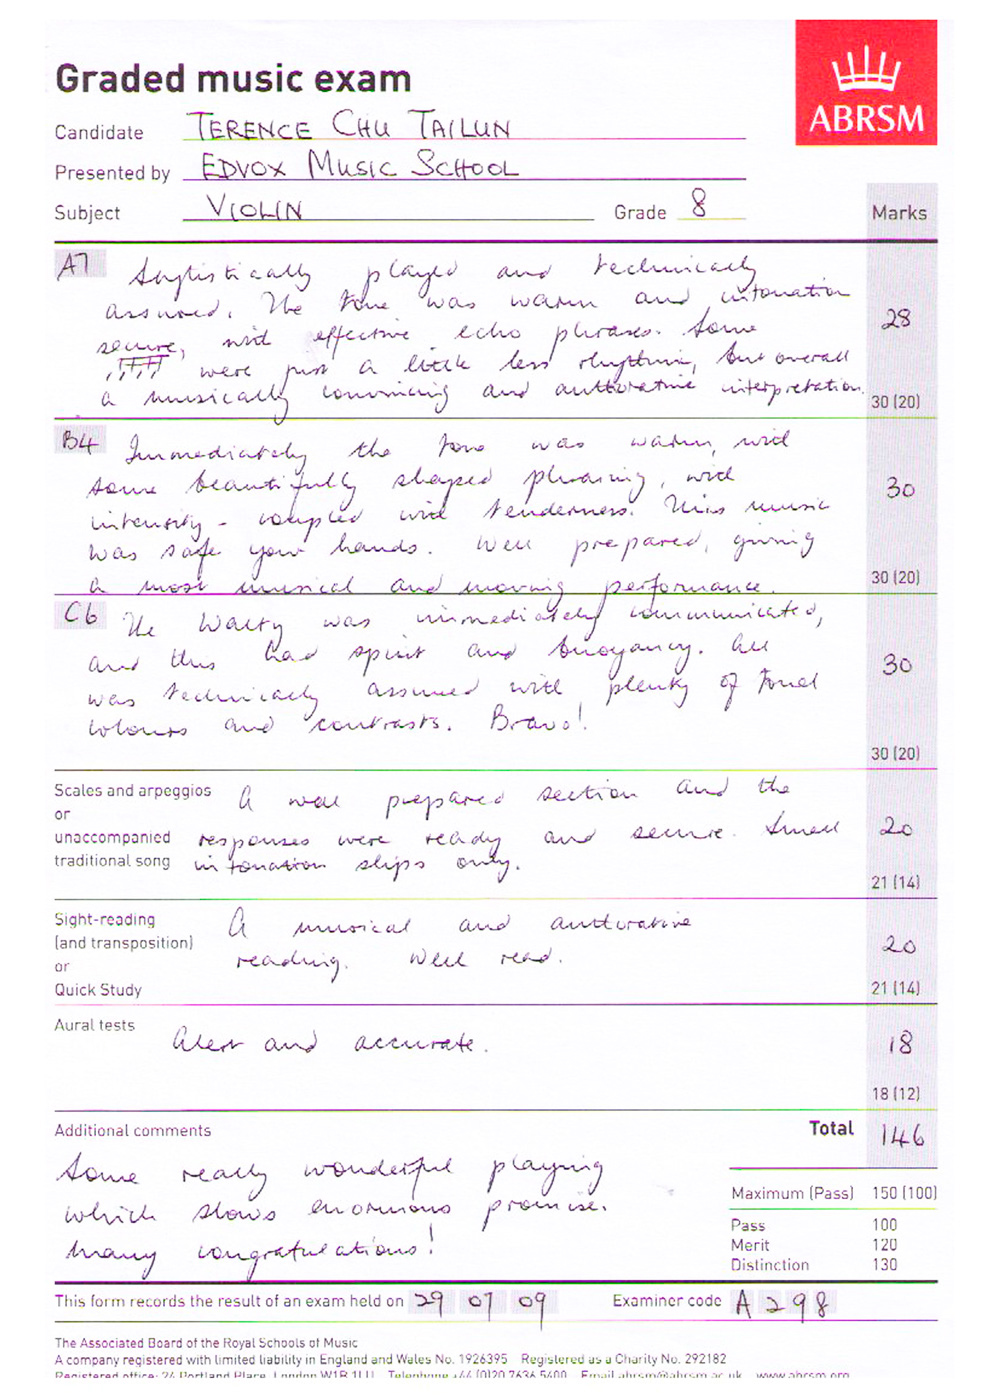 Graded music exam
ABRSM
Candidate TERENCE CHU TAILUN
Presented by EDVOX MUSIC SCHOOL
Subject VIOLIN Grade 8 Marks
A7 Stylistically played and technically
assured. The tone was warm and intonation
secure, with effective echo phrases. Some 28
were just a little less rhythmic, but overall
a musically convincing and authorative interpretation. 30 (20)
B4 Immediately the tone was warm, with
some beautifully shaped phrasing, with
intensity - coupled with tenderness. This music 30
was safe your hands. Well prepared, giving
a most musical and moving performance. 30 (20)
C6 The Waltz was immediately communicated,
and this had spirit and buoyancy. All 30
was technically assured with plenty of tonal
colours and contrasts. Bravo!
30 (20)
Scales and arpeggios
or
unaccompanied
traditional song
A well prepared section and the
responses were ready and secure. Small
intonation slips only.
20
21 (14)
Sight-reading
(and transposition)
or
Quick Study
A musical and authorative
reading. Well read.
20
21 (14)
Aural tests
Alert and accurate.
18
18 (12)
Additional comments
Total 146
Some really wonderful playing
which shows enormous promise.
Many congratulations!
Maximum (Pass) 150 (100)
Pass 100
Merit 120
Distinction 130
This form records the result of an exam held on 29 07 09 Examiner code A298
The Associated Board of the Royal Schools of Music
A company registered with limited liability in England and Wales No. 1926395 Registered as a Charity No. 292182
Registered office: 24 Portland Place, London W1B 1LU Telephone +44 (0)20 7636 5400 Email abrsm@abrsm.ac.uk www.abrsm.org